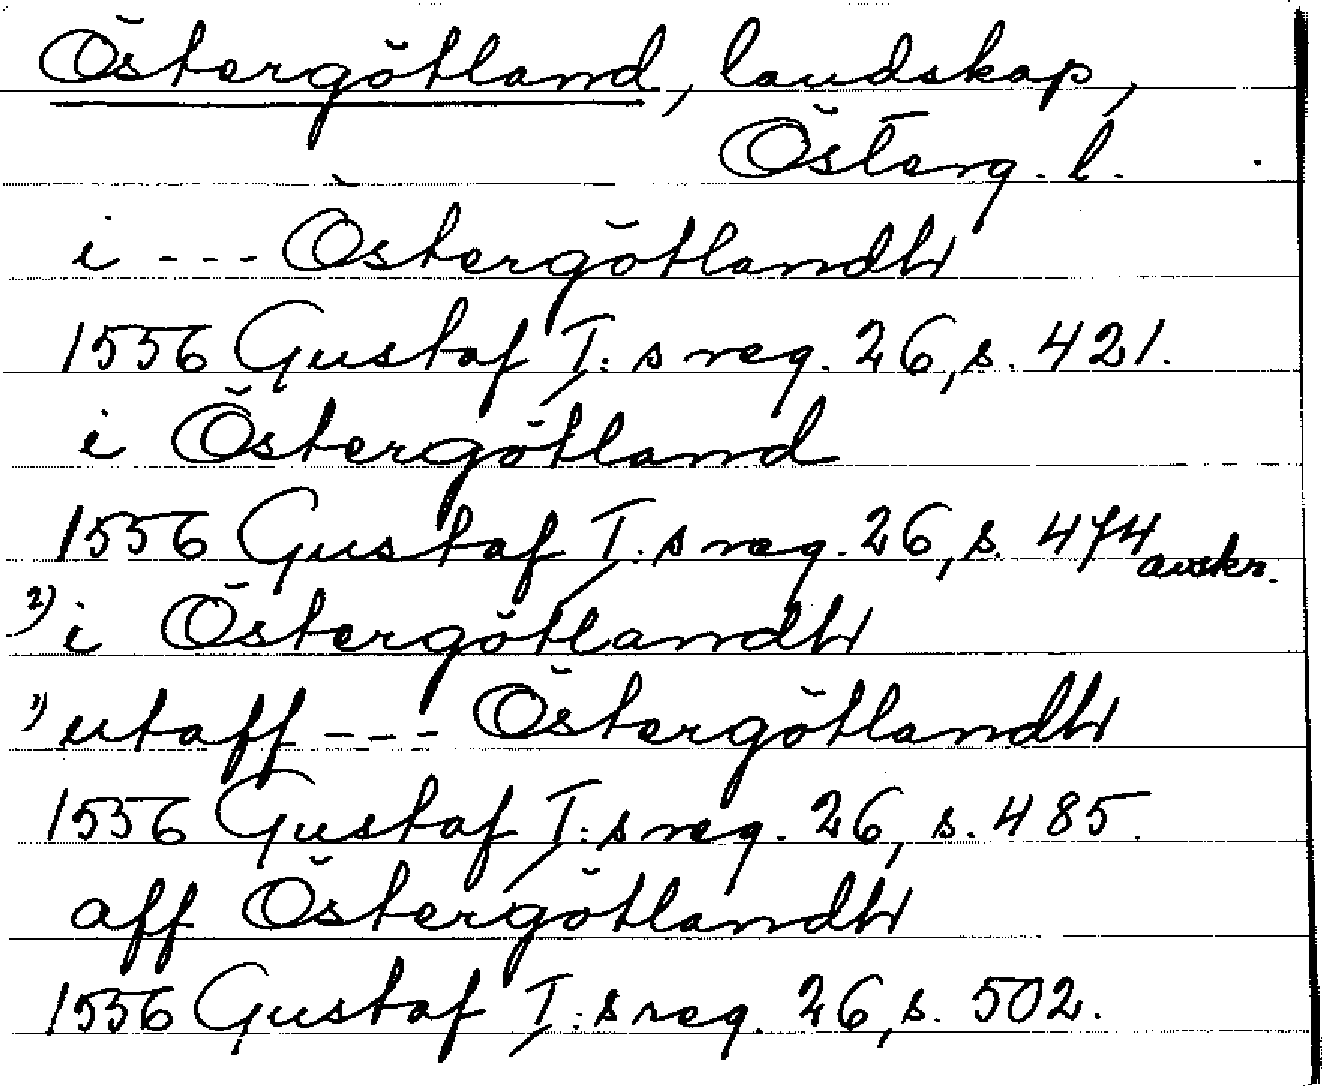 Östergötland, landskap,
Österg. l.
i --- Östergötlandh
1556 Gustaf I:s reg. 26, s. 421.
i Östergötland
1556 Gustaf I:s reg. 26, s. 474 avskr.
2) i Östergötlandh
1) utaff --- Östergötlandh
1556 Gustaf I:s reg. 26, s. 485.
aff Östergötlandh
1556 Gustaf I:s reg. 26, s. 502.